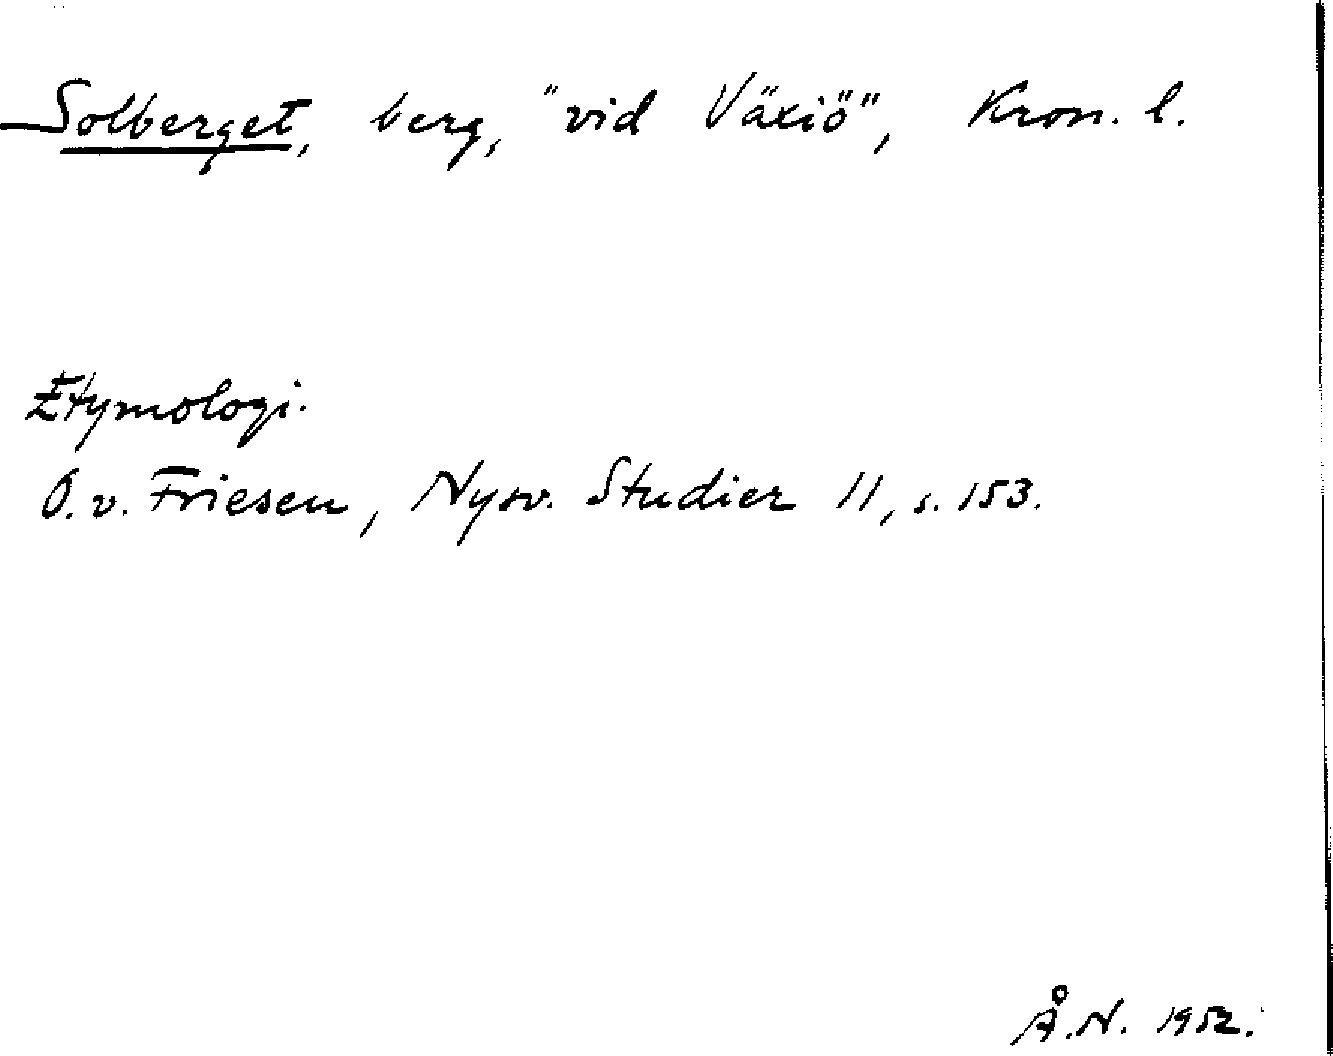 Solberget, berg, "vid Växiö", Kron. l.
Etymologi.
O. v. Friesen, Nysv. Studier 11, s. 153.
Å.N. 1952.